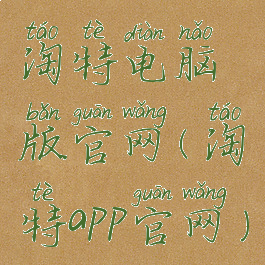 táo tè diàn nǎo
淘特电脑
bǎn guān wǎng táo
版官网(淘
tè guān wǎng
特app官网)